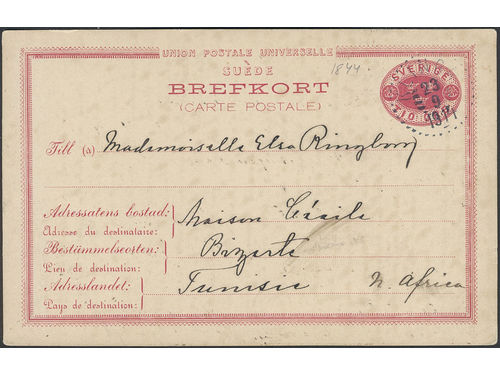 UNION POSTALE UNIVERSELLE
SUÈDE
BREFKORT
(CARTE POSTALE)
1844
SVERIGE
23
9
Till (à) Mademoiselle Elsa Ringborg
Adressatens bostad: Maison Cécile
Adresse du destinataire:
Bestämmelseorten: Bizerte
Lieu de destination:
Adresslandet: Tunisie N Africa
Pays de destination: